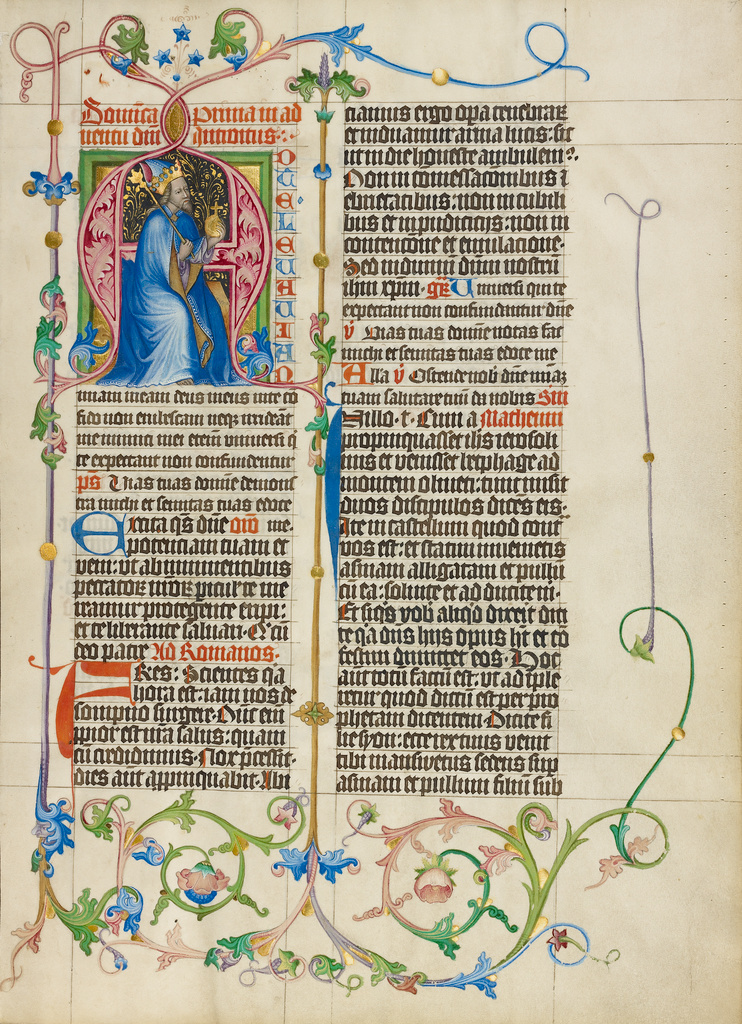 Domica prima in ad
uentu dm Introitus:
A D TE LEUAUI AN
imam meam deus meus in te co
fido non erubescam neqz irrideat
me inimici mei etem vniuersi q
te expectant non confundentur
ps Uias tuas domine demons
tra michi et semitas tuas edoce
Excita qs dne oio me
potenciam tuam et
veni: vt ab imminentibus
peccator mor piculis te me
reamur protegente eripi:
et te liberante saluari. Q cu
deo patre Ad Romanos.
Fres: Scientes qa
hora est: iam nos de
sompno surgere. Nuc em
ppior est nra salus: quam
cu credidimus. Nox pcessit.
dies aut appinquabit. Abi
ciamus ergo opa tenebrar
et induamur arma lucis: sic
ut in die honeste ambulem.
Non in comessacionibus i
ebrietacibus: non in cubili
bus et inpudicicijs: non in
contencione et emulacione.
Sed induimi dnm nostru
ihm xpm. gr Uniuersi qui te
expectant non confundentur dne
v Uias tuas domine notas fac
michi et semitas tuas edoce me
Alla v Ostende nob dne miam
tuam et salutare tuu da nobis
In illo t. Cum a Matheum
propinquasset ihs ierosoli
mis et venisset bethphage ad
montem oliueti: tunc misit
duos discipulos dices eis.
Ite in castellum quod cont
vos est: et statim inuenietis
asinam alligatam et pullu
cu ea: soluite et adducite m.
Et siqs vob aliqd dixerit dici
te qa dns hijs opus ht et co
festim dimittet eos. Hoc
aut totu factu est: vt adiple
retur quod dictu est per pro
phetam dicentem. Dicite fi
lie syon: ecce rex tuus venit
tibi mansuetus sedens sup
asinam et pullum filiu sub